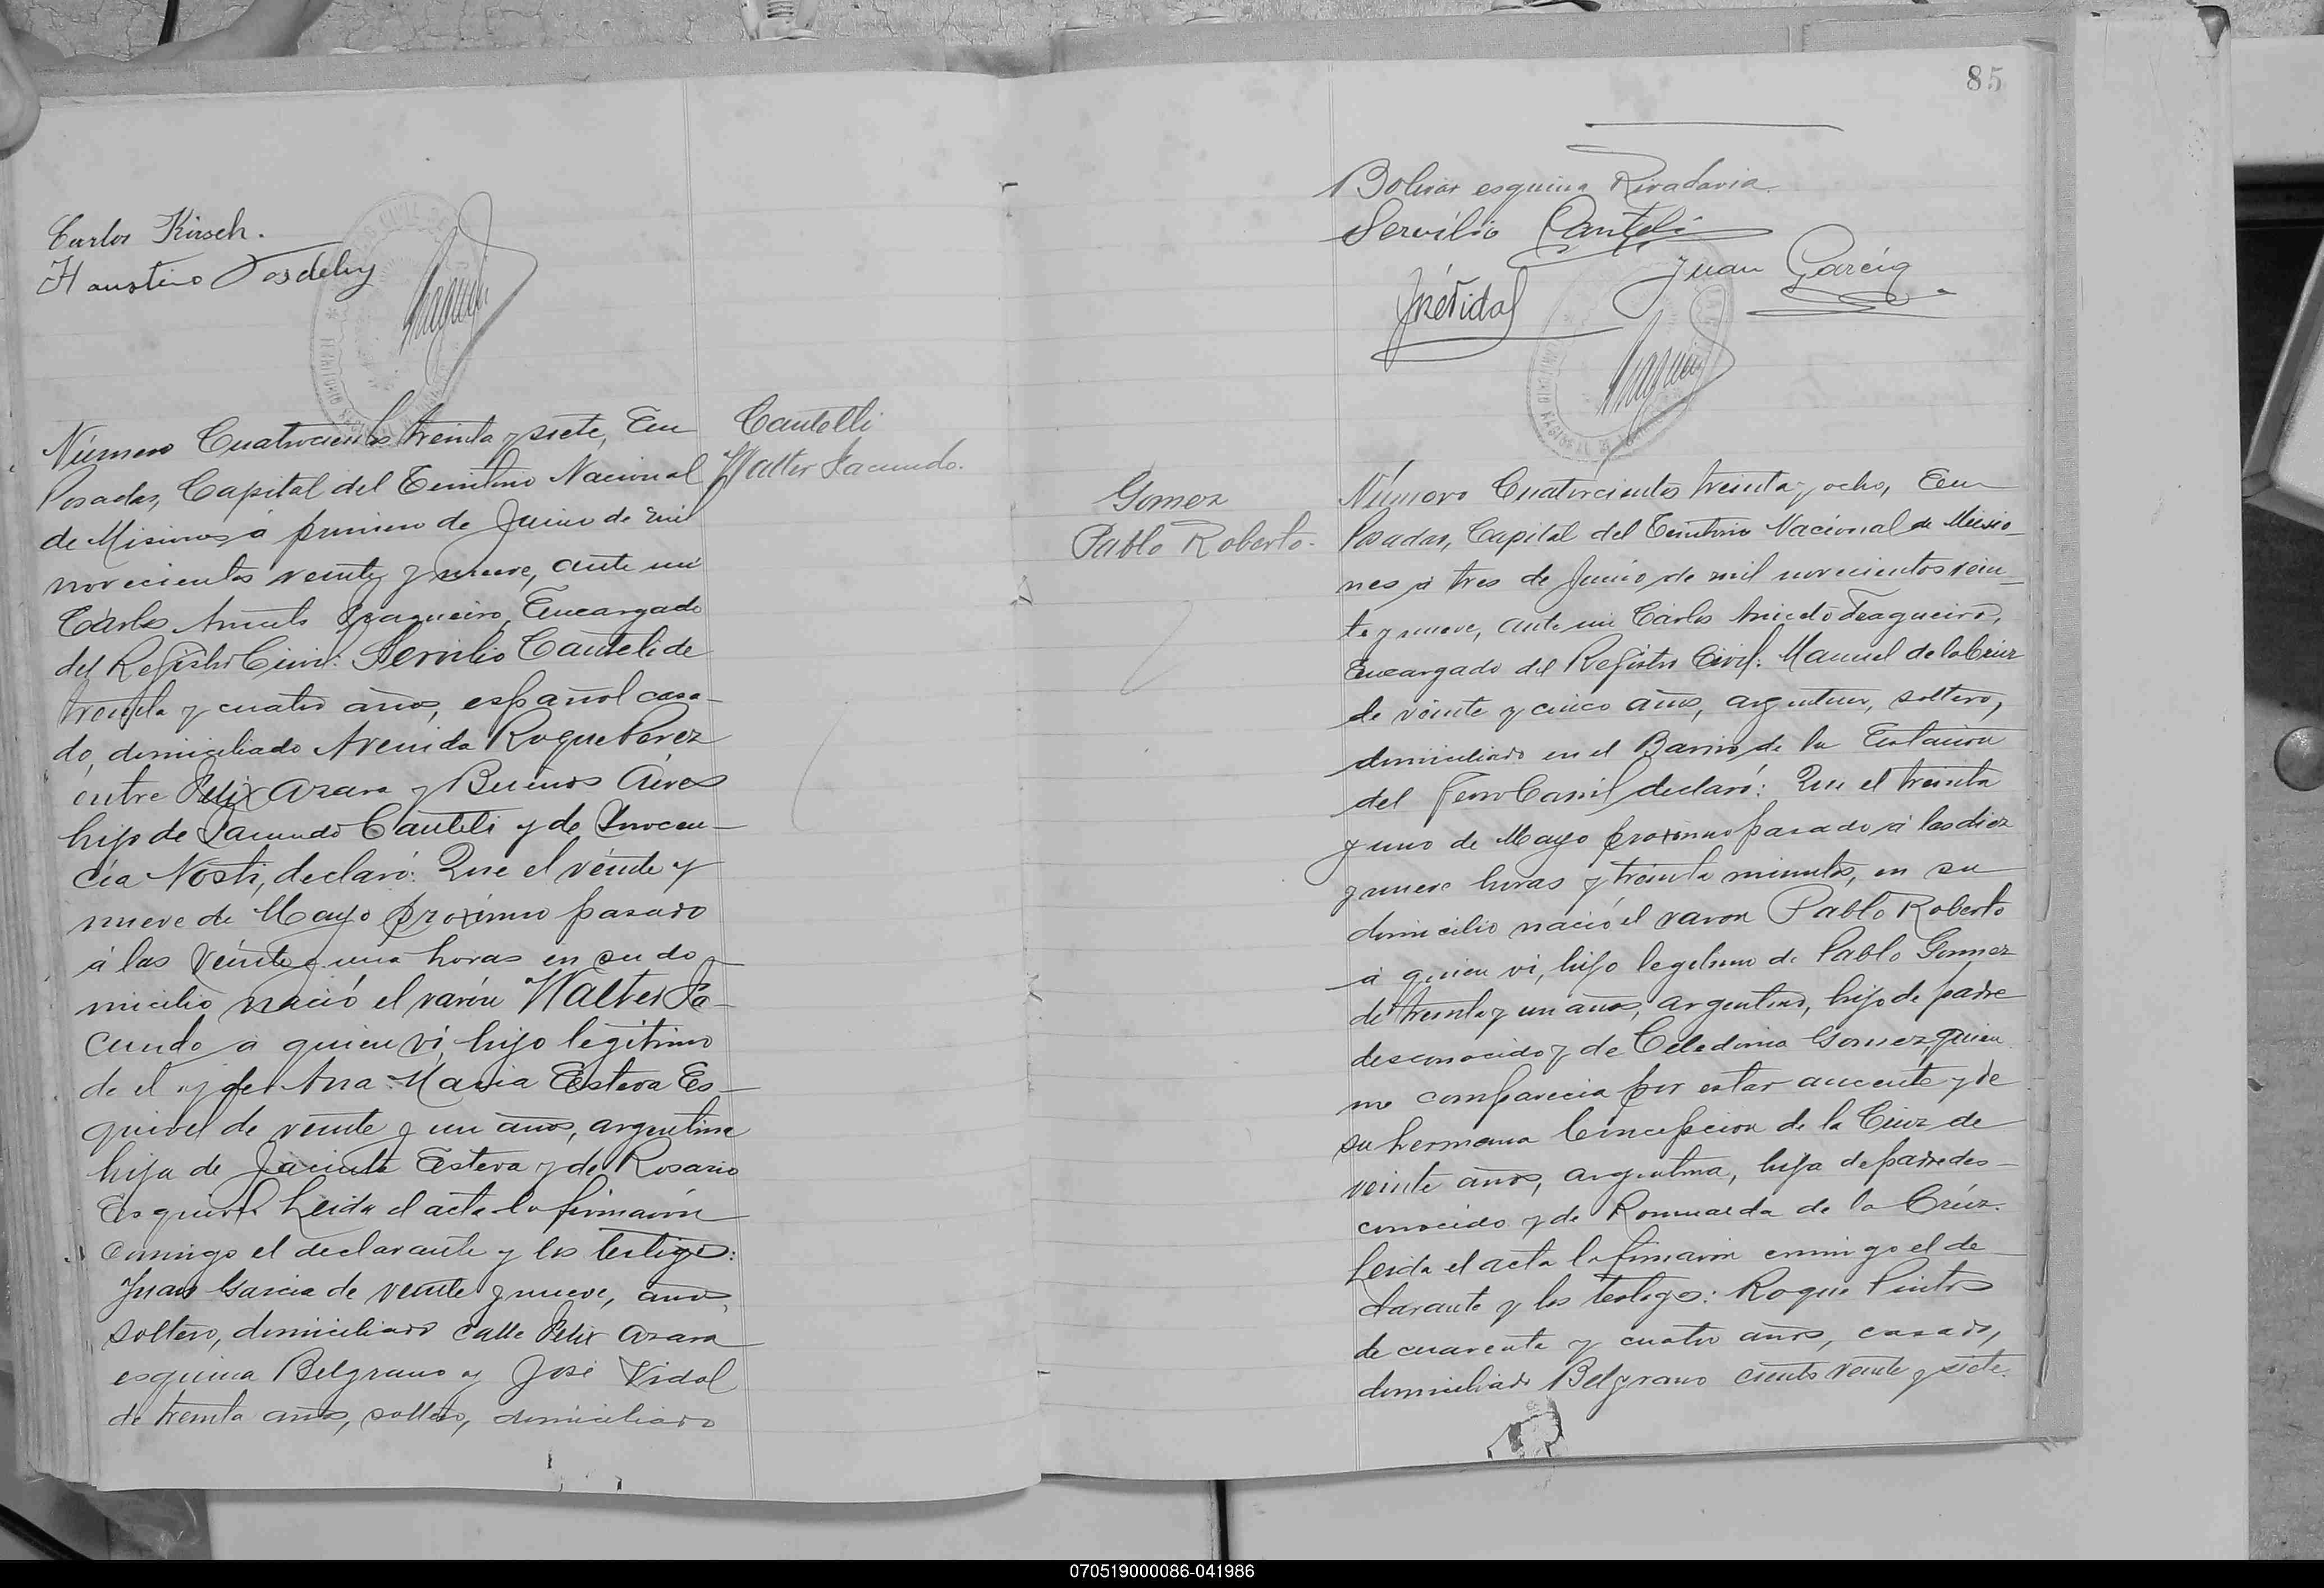 Carlos Kirsch.
Faustino
Número Cuatrocientos treinta y siete, En
Posadas, Capital del Territorio Nacional
de Misiones á primero de Junio de mil
novecientos veinte y nueve, ante mi
Cárlos Aniceto Fragueiro, Encargado
del Registro Civil: Servilio Canteli de
treinta y cuatro años, español casa-
do, domiciliado Avenida Roque Perez
entre Felix Azara y Buenos Aires
hijo de Facundo Canteli y de Inocen-
cia Nosti, declaró: Que el veinte y
nueve de Mayo próximo pasado
á las veinte y una horas en su do-
micilio nació el varón Walter Fa-
cundo a quien vi, hijo legítimo
de el y de Ana Maria Esteva Es-
quivel de veinte y un años, argentina
hija de Jacinto Esteva y de Rosario
Esquivel. Leida el acta la firmaron
conmigo el declarante y los testigos:
Juan Garcia de veinte y nueve, años,
soltero, domiciliado calle Felix Azara
esquina Belgrano y José Vidal
de treinta años, soltero, domiciliado
Cantelli
Walter Facundo.
85
Bolivar esquina Rivadavia.
Servilio Canteli
Juan García
José Vidal
Gomez
Pablo Roberto.
Número Cuatrocientos treinta y ocho, En
Posadas, Capital del Territorio Nacional de Misio-
nes á tres de Junio de mil novecientos vein-
te y nueve, ante mi Cárlos Aniceto Fragueiro,
Encargado del Registro Civil: Manuel de la Cruz
de veinte y cinco años, argentino, soltero,
domiciliado en el Barrio de la Estación
del Ferro Carril declaró: Que el treinta
y uno de Mayo próximo pasado á las diez
y nueve horas y treinta minutos, en su
domicilio nació el varon Pablo Roberto
á quien vi, hijo legítimo de Pablo Gomez
de treinta y un años, argentino, hijo de padre
desconocido y de Celedonia Gomez, quien
no comparecia por estar aucente y de
su hermana Concepcion de la Cruz de
veinte años, argentina, hija de padre des-
conocido y de Romualda de la Crúz.
Leida el acta la firmaron conmigo el de
clarante y los testigos: Roque Pintos
de cuarenta y cuatro años, casado,
domiciliado Belgrano ciento veinte y siete.
070519000086-041986